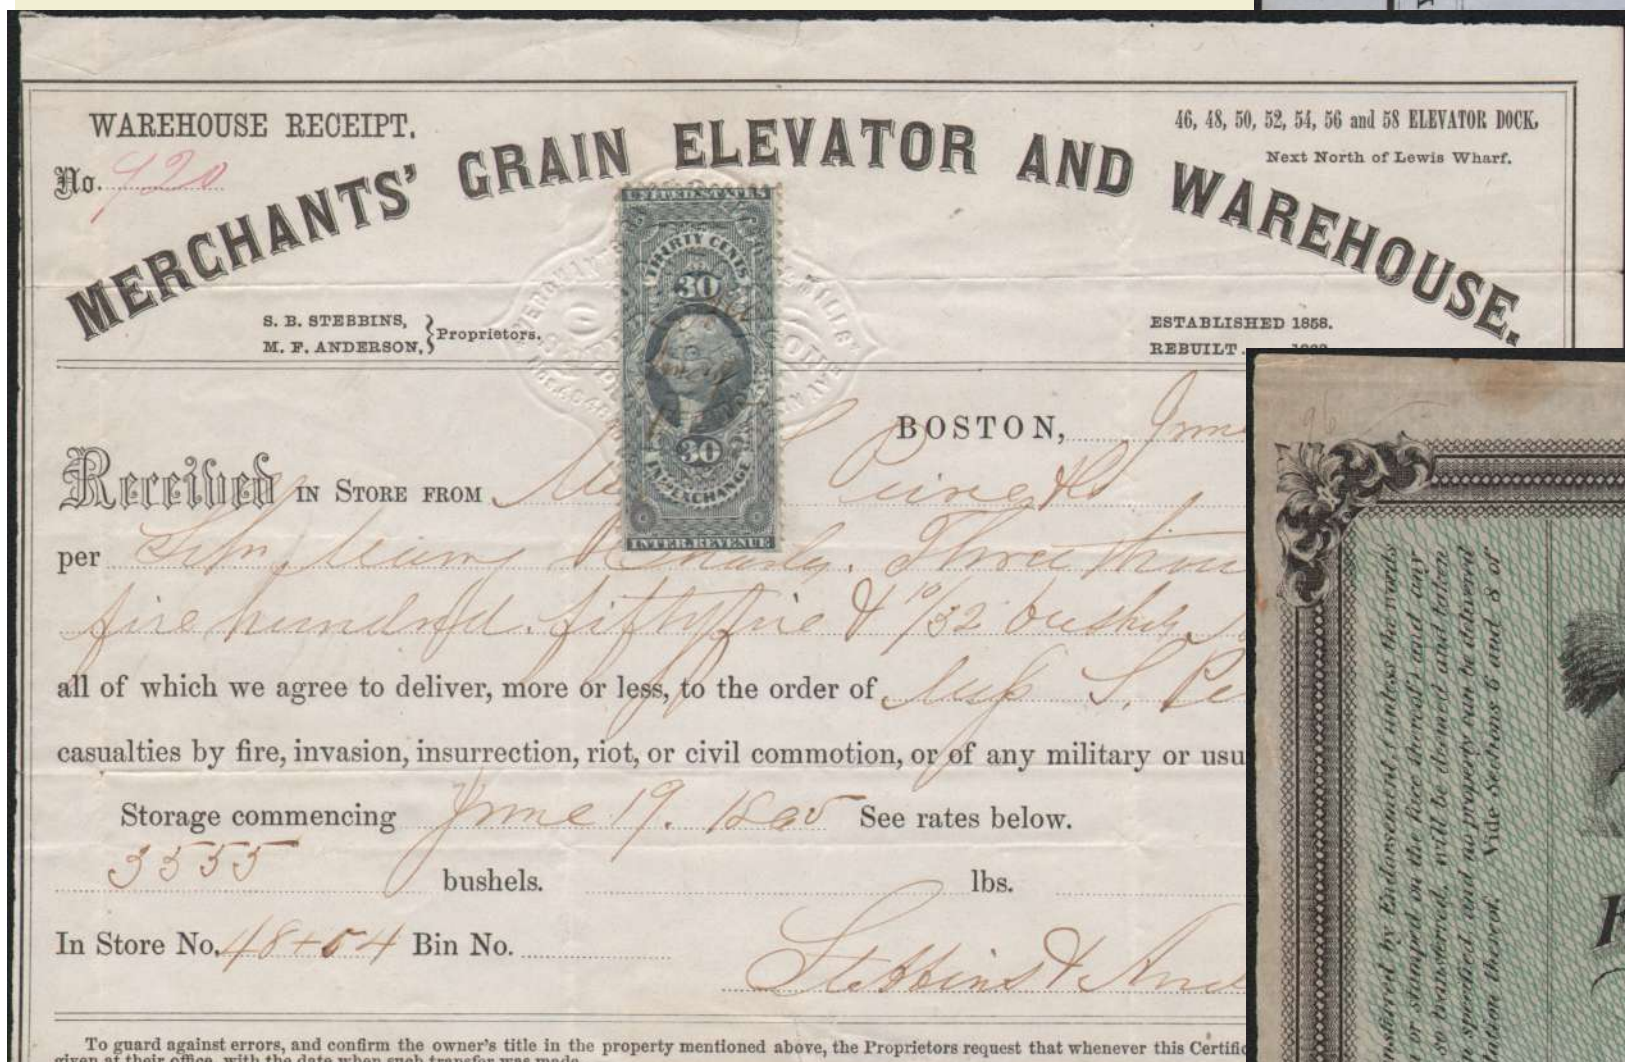 WAREHOUSE RECEIPT.
46, 48, 50, 52, 54, 56 and 58 ELEVATOR DOCK,
Next North of Lewis Wharf.
No. 920
MERCHANTS' GRAIN ELEVATOR AND WAREHOUSE.
S. B. STEBBINS,
M. F. ANDERSON,
Proprietors.
ESTABLISHED 1858.
REBUILT
UNITED STATES
THIRTY CENTS
30
30
IND EXCHANGE
INTER. REVENUE
BOSTON, June
Received IN STORE FROM
per Three thou
five hundred fifty five & 10/32 bushels
all of which we agree to deliver, more or less, to the order of S. Pe
casualties by fire, invasion, insurrection, riot, or civil commotion, or of any military or usu
Storage commencing June 19. 1865 See rates below.
3555 bushels. lbs.
In Store No. 48+54 Bin No.
Stebbins & And
To guard against errors, and confirm the owner's title in the property mentioned above, the Proprietors request that whenever this Certific
given at their office, with the date when such transfer was made.
96
nsferred by Endorsement, (unless the words
or stamped on the face hereof) and any
so transferred, will be deemed and taken
specified, and no property can be delivered
ation thereof. Vide Sections 6 and 8 of